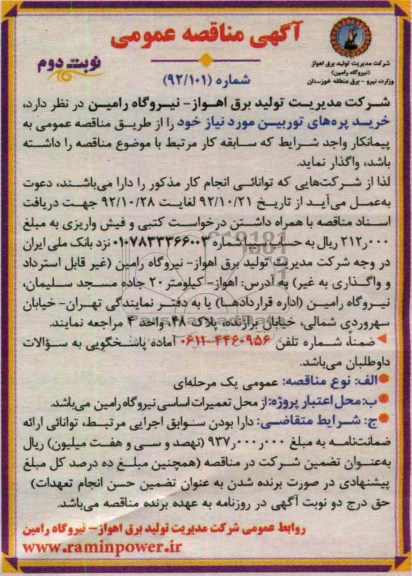 آگهی مناقصه عمومی
شرکت مدیریت تولید برق اهواز
(نیروگاه رامین)
وزارت نیرو - برق منطقه خوزستان
نوبت دوم
شماره (۹۲/۱۰۱)
شرکت مدیریت تولید برق اهواز- نیروگاه رامین در نظر دارد،
خرید پره‌های توربین مورد نیاز خود را از طریق مناقصه عمومی به
پیمانکار واجد شرایط که سابقه کار مرتبط با موضوع مناقصه را داشته
باشد، واگذار نماید.
لذا از شرکت‌هایی که توانائی انجام کار مذکور را دارا می‌باشند، دعوت
به‌عمل می‌آید از تاریخ ۹۲/۱۰/۲۱ لغایت ۹۲/۱۰/۲۸ جهت دریافت
اسناد مناقصه با همراه داشتن درخواست کتبی و فیش واریزی به مبلغ
۲۱۲٫۰۰۰ ریال به حساب سیبا شماره ۰۱۰۷۸۳۳۳۶۶۰۰۳ نزد بانک ملی ایران
در وجه شرکت مدیریت تولید برق اهواز- نیروگاه رامین (غیر قابل استرداد
و واگذاری به غیر) به آدرس: اهواز- کیلومتر ۲۰ جاده مسجد سلیمان،
نیروگاه رامین (اداره قراردادها) یا به دفتر نمایندگی تهران- خیابان
سهروردی شمالی، خیابان برازنده، پلاک ۴۸، واحد ۴ مراجعه نمایند.
ضمنا، شماره تلفن ۴۴۶۰۹۵۶-۰۶۱۱ آماده پاسخگویی به سؤالات
داوطلبان می‌باشد.
الف: نوع مناقصه: عمومی یک مرحله‌ای
ب: محل اعتبار پروژه: از محل تعمیرات اساسی نیروگاه رامین می‌باشد.
ج: شرایط متقاضی: دارا بودن سوابق اجرایی مرتبط، توانائی ارائه
ضمانت‌نامه به مبلغ ۹۳۷٫۰۰۰٫۰۰۰ (نهصد و سی و هفت میلیون) ریال
به‌عنوان تضمین شرکت در مناقصه (همچنین مبلغ ده درصد کل مبلغ
پیشنهادی در صورت برنده شدن به عنوان تضمین حسن انجام تعهدات)
حق درج دو نوبت آگهی در روزنامه به عهده برنده مناقصه می‌باشد.
روابط عمومی شرکت مدیریت تولید برق اهواز- نیروگاه رامین
www.raminpower.ir